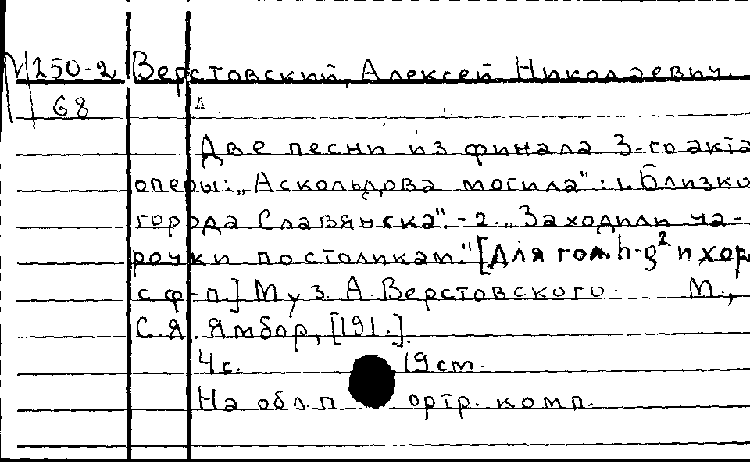 М250-2 Верстовский, Алексей Николаевич
68
Две песни из финала 3-го акта
оперы: „Аскольдова могила": 1. Близко
города Славянска". - 2. „Заходили ча-
рочки по столикам." [Для гол. h-g² и хор
с ф-п.] Муз. А. Верстовского. М.,
С.Я. Ямбор, [191.].
4 с. 19 см.
На обл. портр. комп.